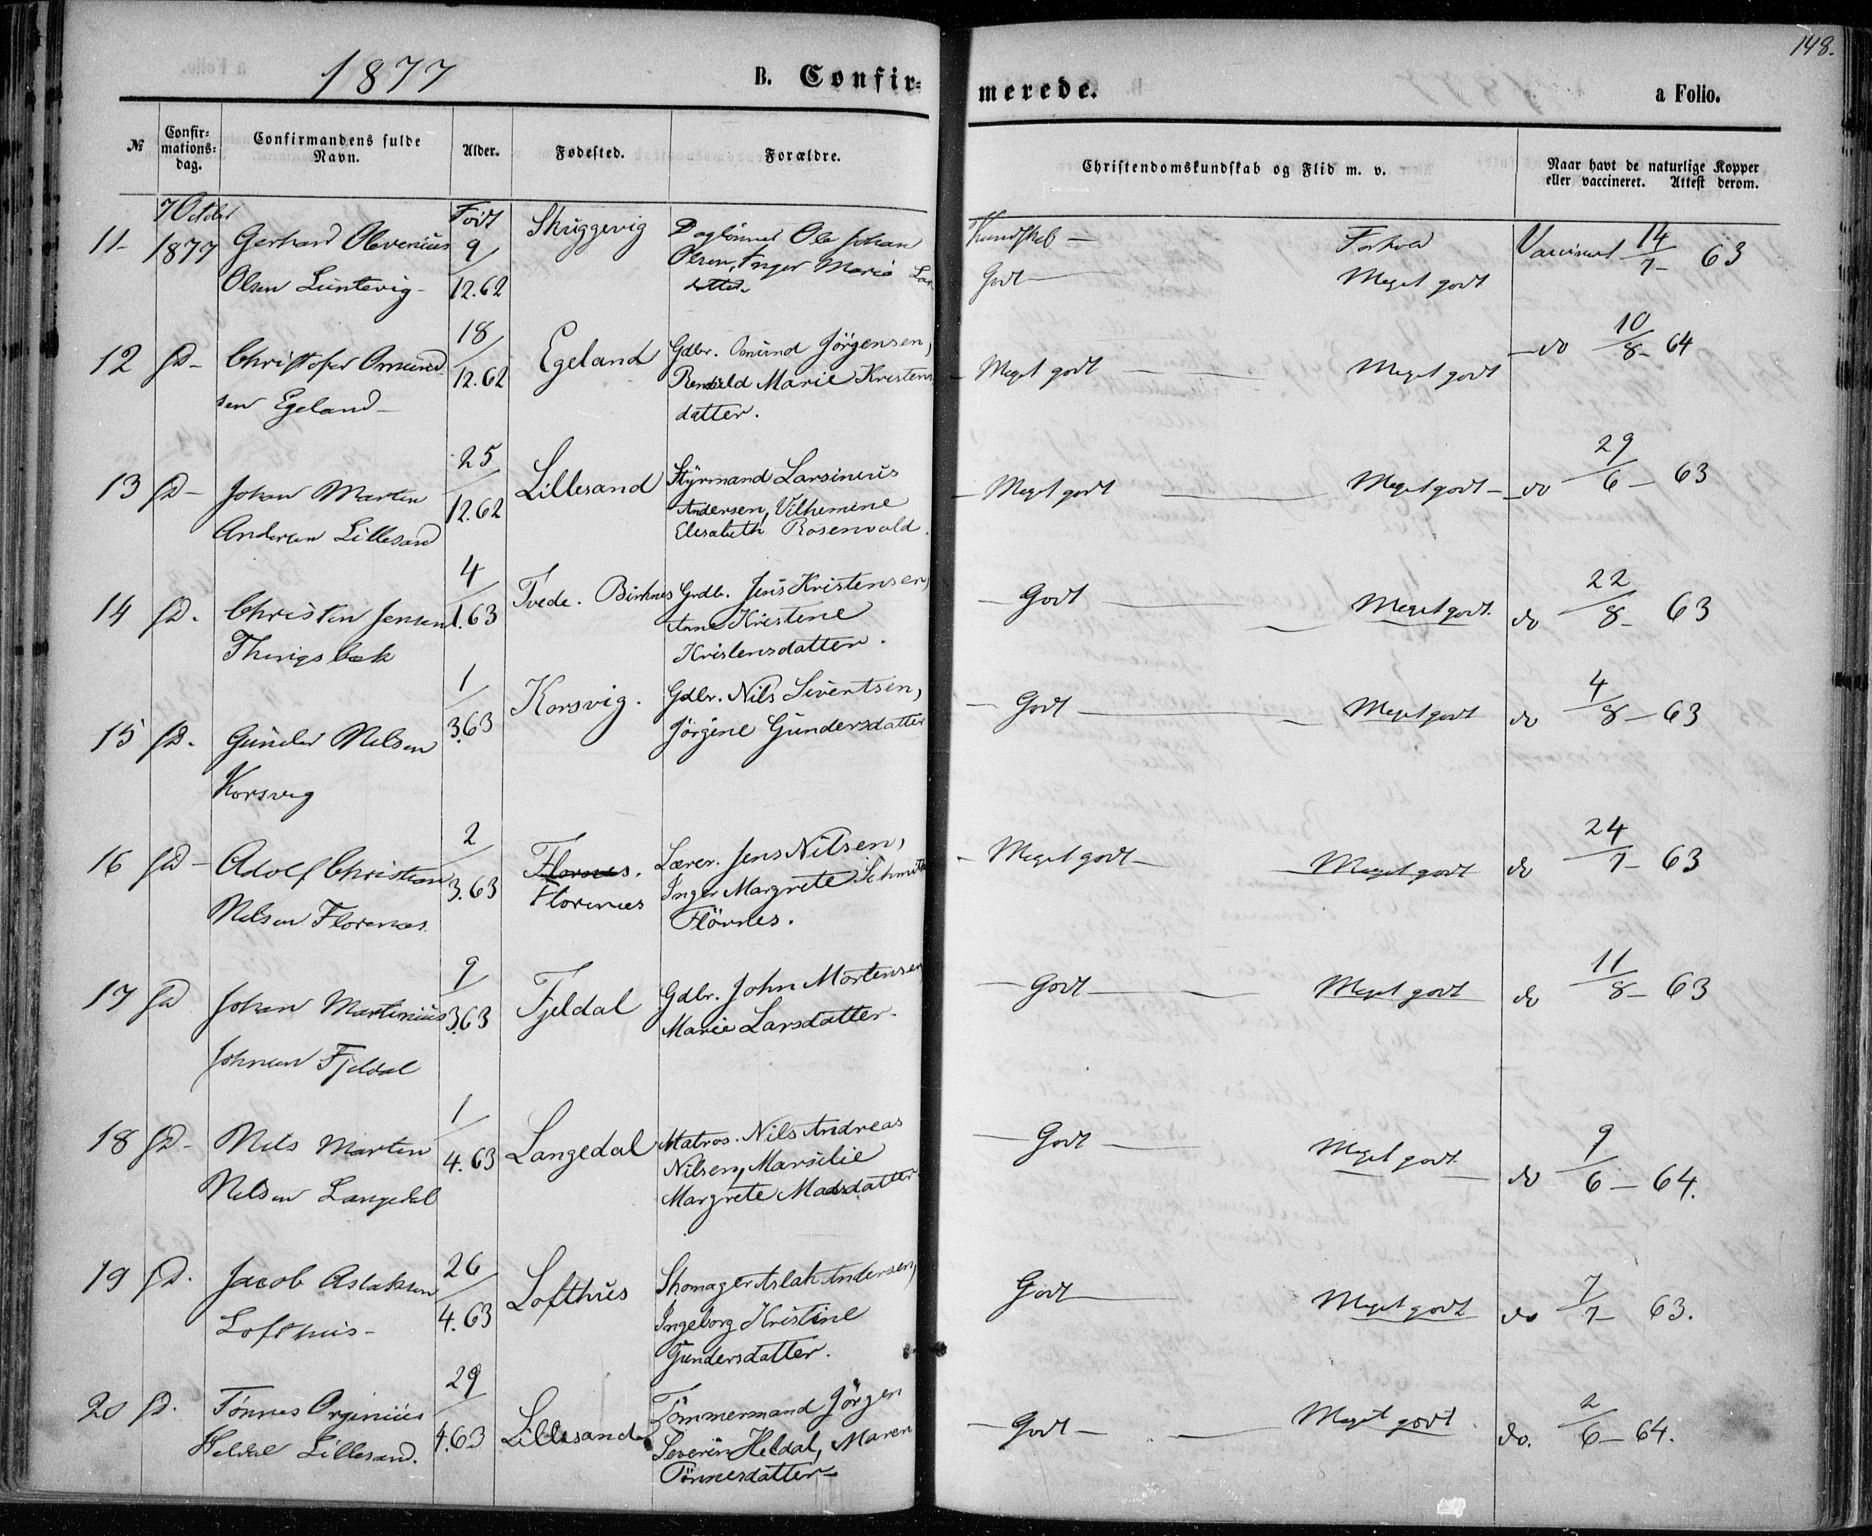 148.
1877 B. Confir= merede. a Folio.
№ Confir=mations=dag. Confirmandens fulde Navn. Alder. Fødested. Forældre. Christendomskundskab og Flid m. v. Naar havt de naturlige Kopper eller vaccineret. Attest derom.
7 October Født Kundskab — Forhold
11- 1877 Gerhard Olevenius 9/12.62 Skiggevig Daglønner Ole Johan Godt — Meget godt Vaccineret 14/7- 63
Olsen Luntevig- Olsen, Inger Marie Lar
datter
12 d- Christofer Omund 18/12.62 Egeland Gdbr. Omund Jörgensen, - Meget godt — Meget godt — do 10/8- 64
sen Egeland- Marie Kristens
datter.
13 d- Johan Martin 25/12.62 Lillesand Styrmand Larsinius - Meget godt — Meget godt - do 29/6 - 63
Andersen Lillesand Andersen, Vilhemine
Elisabeth Rosenvold.
14 d. Christen Jensen 4/1.63 Tvede. Birknes Grdb. Jens Kristensen, - Godt — Meget godt. do 22/8- 63
Thingsbek Anne Kristine
Kristensdatter.
15 d. Gunder Nilsen 1/3.63 Korsvig. Gdbr. Nils Sivertsen, - Godt — Meget godt do 4/8 - 63
Korsvig Jörgine Gundersdatter
16 d- Adolf Christian 2/3.63 Flornes. Lærer. Jens Nilsen, - Meget godt — Meget godt do 24/7- 63
Nilsen Florenes. Florenes Inger Margrete Schmidt
Flörnes.
17 d Johan Martinius 9/3.63 Fjeldal Gdbr. John Mortensen - Godt — Meget godt do 11/8- 63
Johnsen Fjeldal Marie Larsdatter.
18 d- Nils Martin 1/4.63 Langedal Matros. Nils Andreas - Godt — Meget godt. do 9/6 - 64.
Nilsen Langedal Nilsen, Marsilie
Margrete Madsdatter
19 d. Jacob Aslaksen 26/4.63 Lofthus Skomager Aslak Andersen, Godt — Meget godt do 7/7- 63.
Lofthus- Ingeborg Kristine
Gundersdatter.
20 d. Tönnes Orginius 29/4.63 Lillesand Tömmermand Jörgen - Godt - Meget godt. do. 2/6 - 64.
Heldal Lillesand. Severin Heldal, Maren
Tönnesdatter-